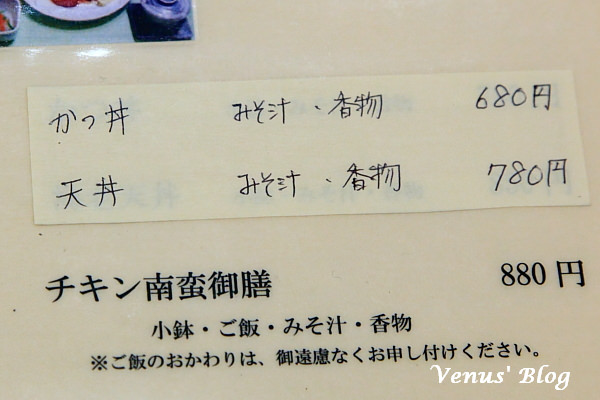 かつ丼 みそ汁・香物 680円
天丼 みそ汁・香物 780円
チキン南蛮御膳 880円
小鉢・ご飯・みそ汁・香物
※ご飯のおかわりは、御遠慮なくお申し付けください。
Venus' Blog